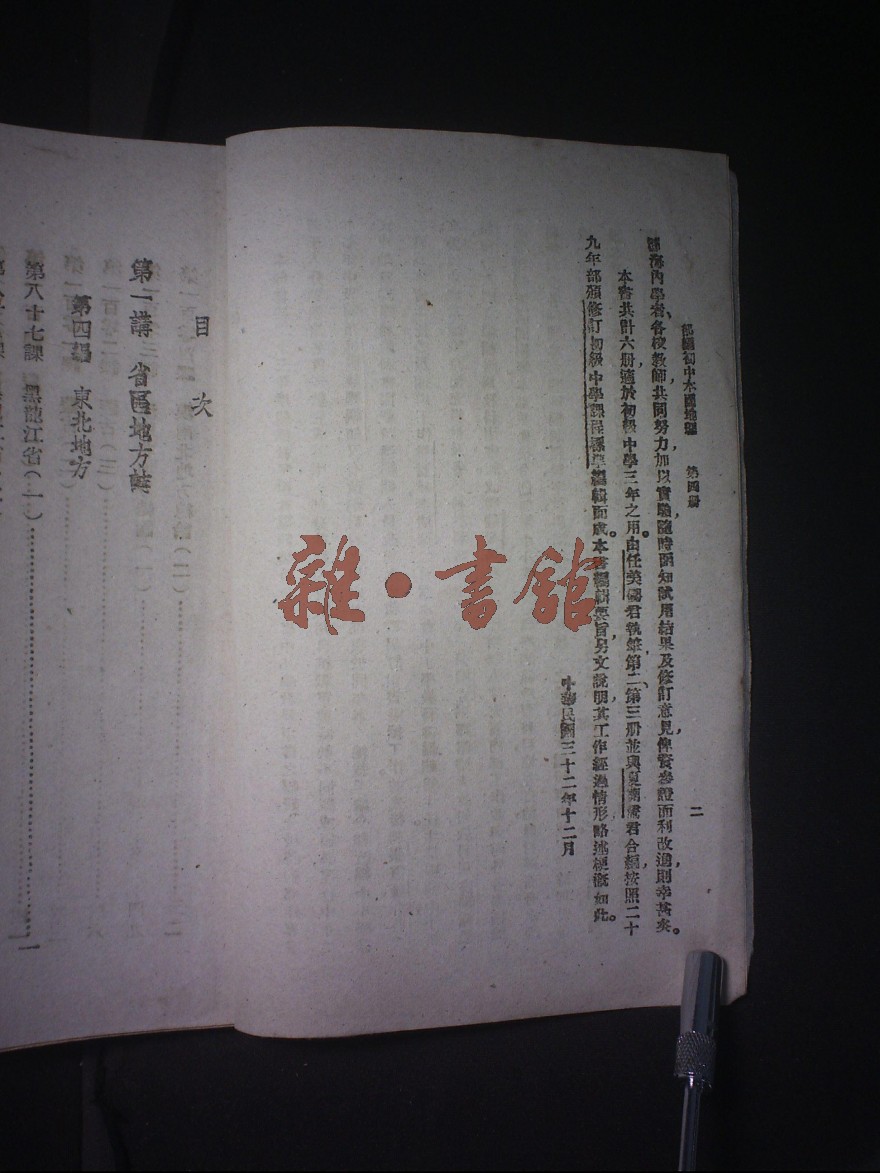 部編初中本國地理 第四册 二
海內學者、各校教師共同努力，加以實驗，隨時函知試用結果及修訂意見，俾資參證而利改進，則幸甚矣。
本書共計六册，適於初級中學三年之用。由任美鍔君執筆，第二、第三册並與夏開儒君合編，按照二十
九年部頒修訂初級中學課程標準編輯而成。本書編輯要旨，另文說明，其工作經過情形，略述梗概如此。
中華民國三十二年十二月
雜·書館
目次
第一講 省區地方誌
第四編 東北地方
第八十七課 黑龍江省(一)……一